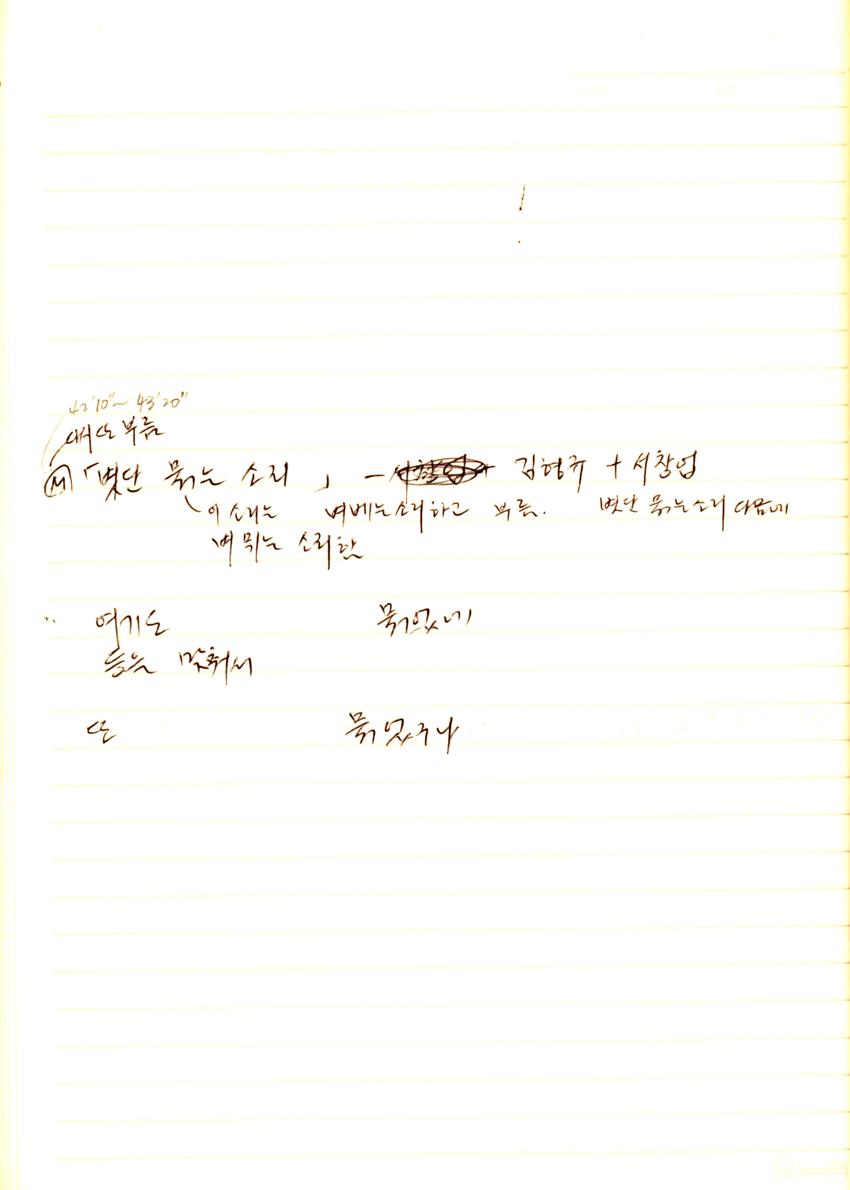 42'10"~ 43'20"
다시 또 부름
Ⓜ「볏단 묶는 소리」 - 김형규 + 서창업
이 소리는 벼베는소리하고 부름. 볏단 묶는소리 다음에
벼 소리한
여기도 묶었네
등은 맞춰서
또 묶었구나